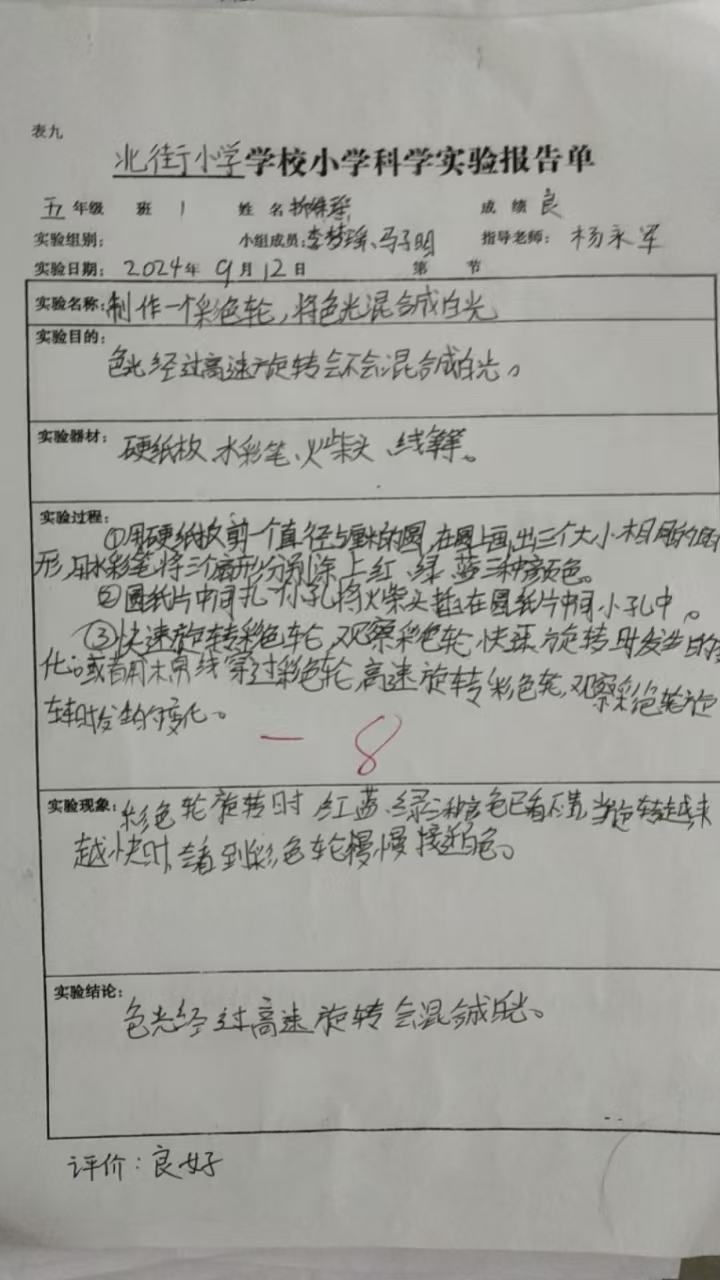 表九
北街小学学校小学科学实验报告单
五年级 班 1 姓名 成绩 良
实验组别: 小组成员:李梦瑶、马子明 指导老师: 杨永军
实验日期: 2024年 9月12日 第 节
实验名称:制作一个彩色轮,将色光混合成白光
实验目的:
色光经过高速旋转会不会混合成白光。
实验器材: 硬纸板、水彩笔、火柴头、线等。
实验过程:
①用硬纸板剪一个直径5厘米的圆,在圆上画出三个大小相同的扇
形,用水彩笔将三个扇形分别涂上红、绿、蓝三种颜色。
②圆纸片中间扎一个小孔将火柴头插在圆纸片中间小孔中。
③快速旋转彩色轮,观察彩色轮快速旋转时发生的变
化。或者用棉线穿过彩色轮,高速旋转彩色轮,观察彩色轮旋
转时发生的变化。
- 8
实验现象: 彩色轮旋转时 红、蓝、绿三种颜色已看不清,当旋转越来
越快时,会看到彩色轮慢慢接近白色。
实验结论:
色光经过高速旋转会混合成白光。
评价:良好